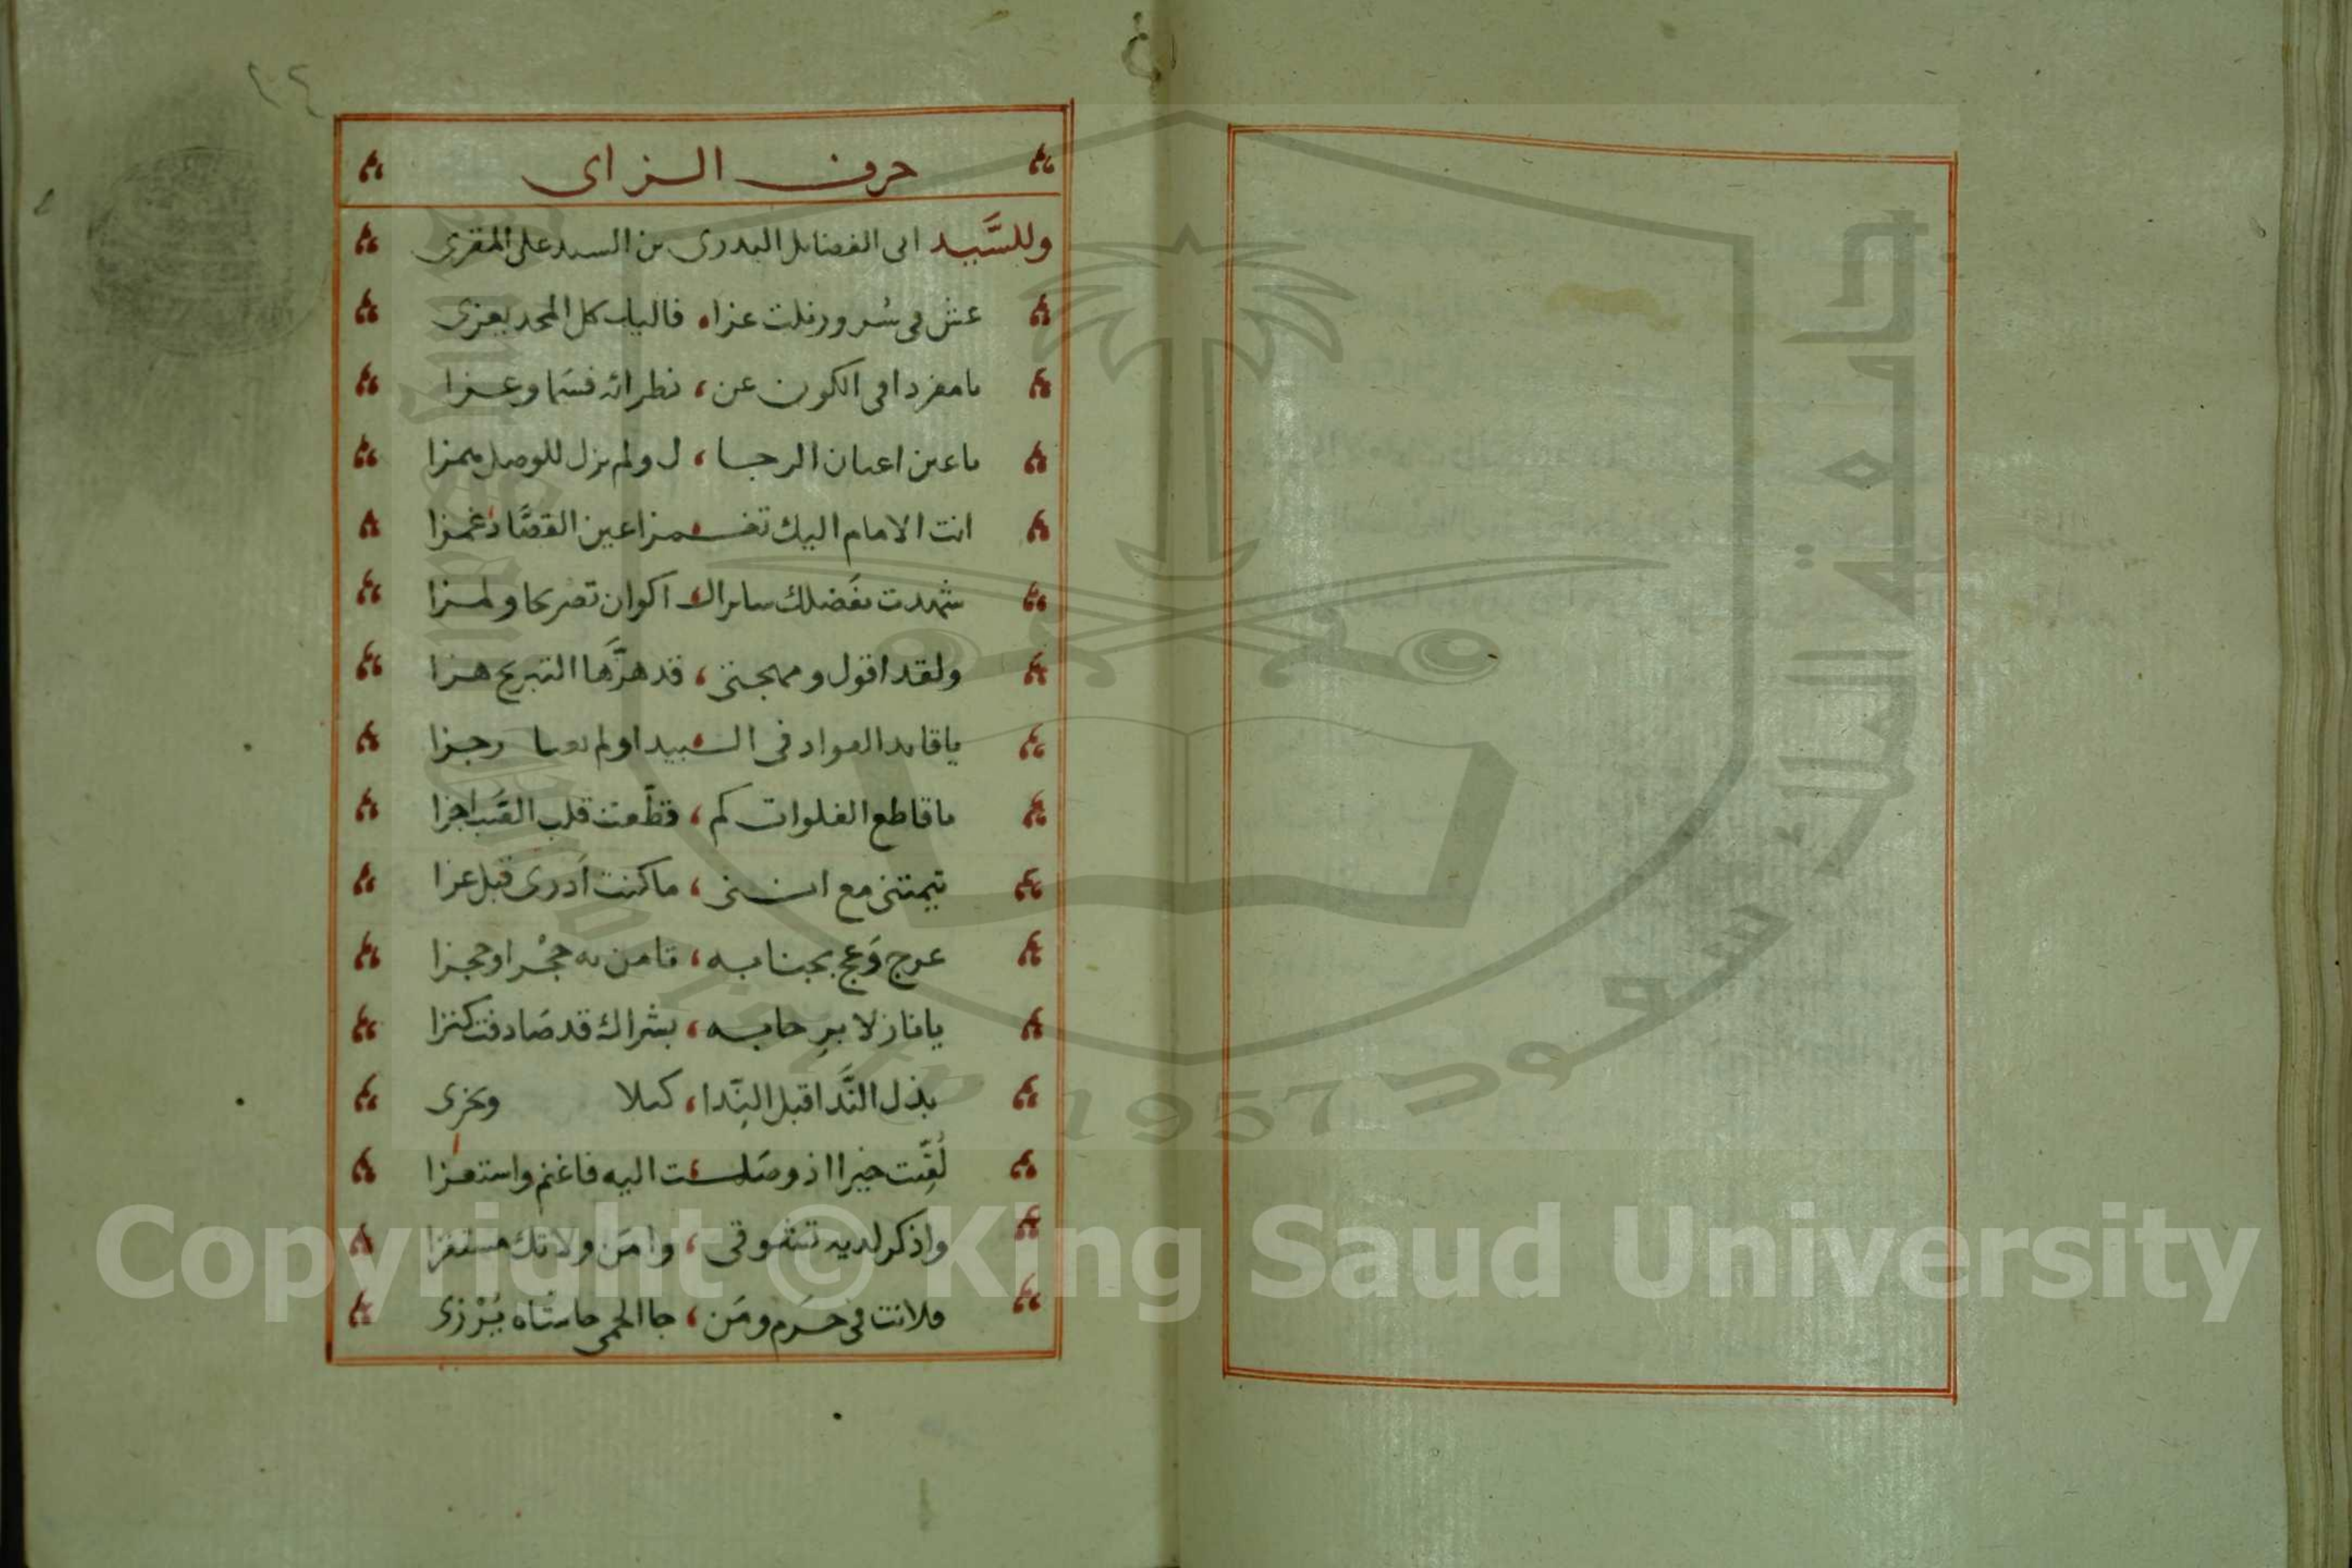 ٢٤
حرف الزاى
وللسَّيد ابى الفضايل البدرى بن السيد على المقرى
عش فى سُرور نلت عزا، فاليك كل المجد يعزى
يا مفردا فى الكون عن، نظرائه فسَما وعزا
يا عين اعيان الرجا، ل ولم يزل للوصل
انت الامام اليك تغـ، ـمز اعين القصَّاد غمزا
شهدت بفَضلك ساير الـ، اكوان تصريحا ولمزا
ولقد اقول ومهجتى، قد هزَّها التبريح هزا
يا قايد القواد فى الـ، ـبيدا ولم رجزا
يا قاطع الفلوات كم، قطّعت قلب الصَب جزا
تيمتنى مع اننى، ما كنت أدرى قبل عزا
عرج وَعج بجنابه، تامن به حجْرا وحجزا
يا نازلا برحابه، بشراك قد صَادفت كنزا
بذل النَّدا قبل النِدا، كيلا ويخزى
لُقِّيت خيرا اذ وصَلـ، ـت اليه فاغنم واستعزا
واذكر لديه تشوقى، وامَن ولا تك مستفزا
فلانت فى حَرَم ومَن، جا الحمى حاشاه يُرْزى
جامعة الملك سعود
King Saud University
1957
Copyright © King Saud University